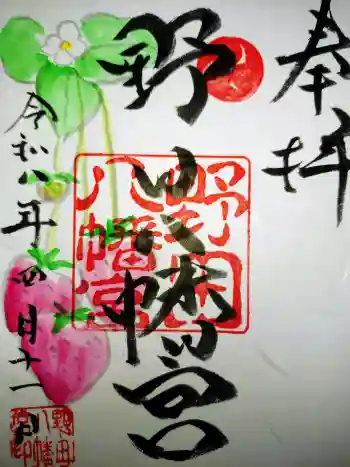 奉拝
野田八幡宮
令和八年四月十一日
野田
八幡宮
野田
八幡